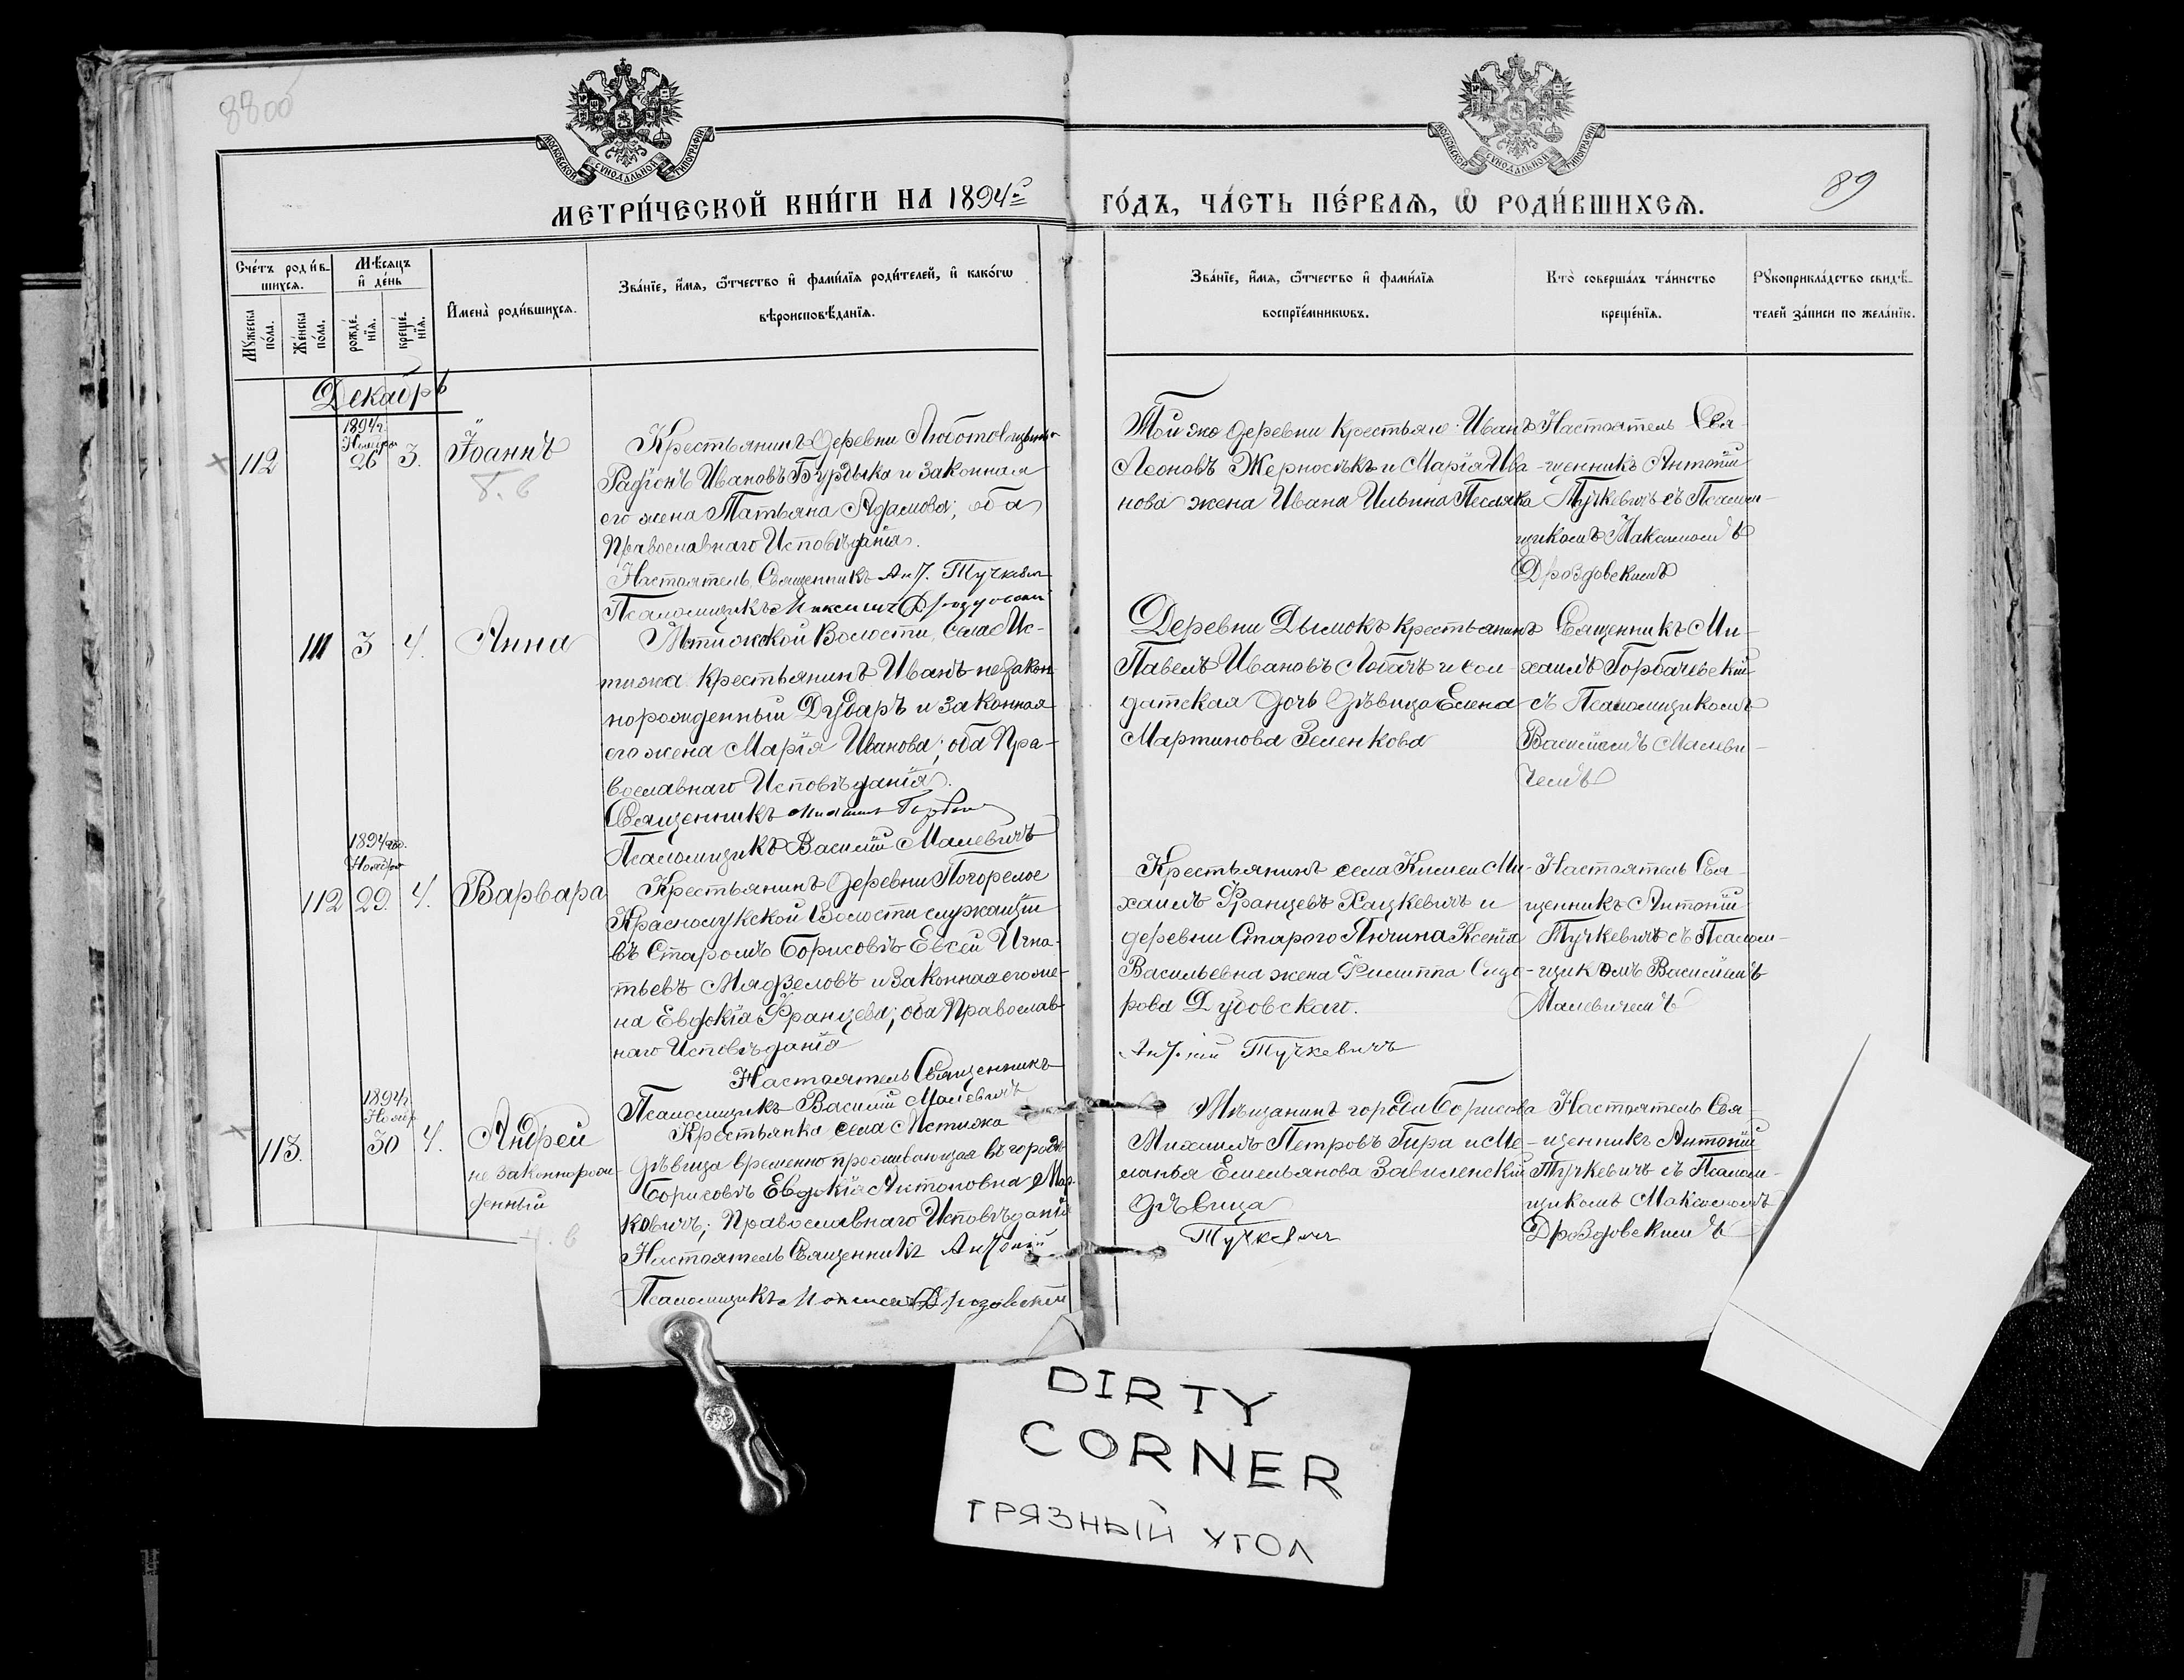 8800
МОСКОВСКОЙ СѴНОДАЛЬНОЙ ТИПОГРАФІИ
МОСКОВСКОЙ СѴНОДАЛЬНОЙ ТИПОГРАФІИ
МЕТРИ́ЧЕСКОЙ КНИ́ГИ НА 1894й
ГО́ДЪ, ЧА́СТЬ ПЕ́РВАѦ, Ѽ РОДИ́ВШИХСѦ.
89
Сче́тъ роди́в-
шихсѧ.
Мꙋжеска
по́ла.
Же́нска
по́ла.
Мѣ́сѧцъ
и҆ де́нь
рожде́-
нїѧ.
креще́-
нїѧ.
И҆мена̀ роди́вшихсѧ.
Зва́нїе, и҆́мѧ, ѻ҆́тчество и҆ фами́лїѧ роди́телей, и҆ како́гѡ
вѣроисповѣ́данїѧ.
Зва́нїе, и҆́мѧ, ѻ҆́тчество и҆ фами́лїѧ
воспрїе́мникѡвъ.
Кто̀ соверша́лъ та́инство
креще́нїѧ.
Рꙋкоприкла́дство свидѣ́-
телей за́писи по жела́нїю.
Декабрь
1894г.
Ноября
112 26 3. Іоаннъ
Крестьянинъ деревни
Радіонъ Ивановъ Бурдыко и законная
его жена Татьяна Адамова; оба
Православнаго Исповѣданія.
Настоятель Священникъ Ант. Тучкевич
Псаломщикъ Максимъ Дроздовскій
Той же деревни крестьяне Иванъ
Леоновъ Жерносѣкъ и Марія Ива-
нова жена Ивана Ильина Песляка
Настоятель Свя-
щенникъ Антоній
Тучкевичъ съ Псалом-
щикомъ Максимомъ
Дроздовскимъ
111 3 4. Анна
Мстижской Волости, села Мс-
тижа крестьянинъ Иванъ незакон-
норожденный Дударъ и законная
его жена Марія Иванова; оба Пра-
вославнаго Исповѣданія.
Священникъ Михаилъ
Псаломщикъ Василій Малевичъ
Деревни Дымокъ крестьянинъ
Павелъ Ивановъ Лобачъ и сол-
датская дочь дѣвица Елена
Мартинова Зеленкова
Священникъ Ми-
хаилъ Горбачевскій
съ Псаломщикомъ
Василіемъ Малеви-
чемъ
1894го.
Ноября
112 29. 4. Варвара
Крестьянинъ деревни Погорелое
Краснолукской Волости служащій
въ Старомъ Борисовѣ Евсей Игна-
тьевъ Мядзеловъ и законная его же-
на Евдокія Францева; оба Православ-
наго Исповѣданія
Настоятель Священникъ
Псаломщикъ Василій Малевичъ
Крестьянинъ села Кищи Ми-
хаилъ Францевъ Хацкевичъ и
деревни Старого Янчина Ксенія
Васильевна жена Филиппа Сидо-
рова Дубовскаго.
Антоній Тучкевичъ
Настоятель Свя-
щенникъ Антоній
Тучкевичъ съ Псалом-
щикомъ Василіемъ
Малевичемъ
1894г.
Ноябр
113. 30 4. Андрей
незаконнорож-
денный
Крестьянка села Мстижа
дѣвица временно проживающая въ городѣ
Борисовѣ Евдокія Антоновна Мар-
ковичъ; Православнаго Исповѣданія
Настоятель Священникъ Антоній
Псаломщикъ Максимъ Дроздовскій
Мѣщанинъ города Борисова
Михаилъ Петровъ Гира и Ме-
ланья Емельянова Завиленская
дѣвица
Тучкевичъ
Настоятель Свя-
щенникъ Антоній
Тучкевичъ съ Псалом-
щикомъ Максимомъ
Дроздовскимъ
DIRTY
CORNER
ГРЯЗНЫЙ УГОЛ